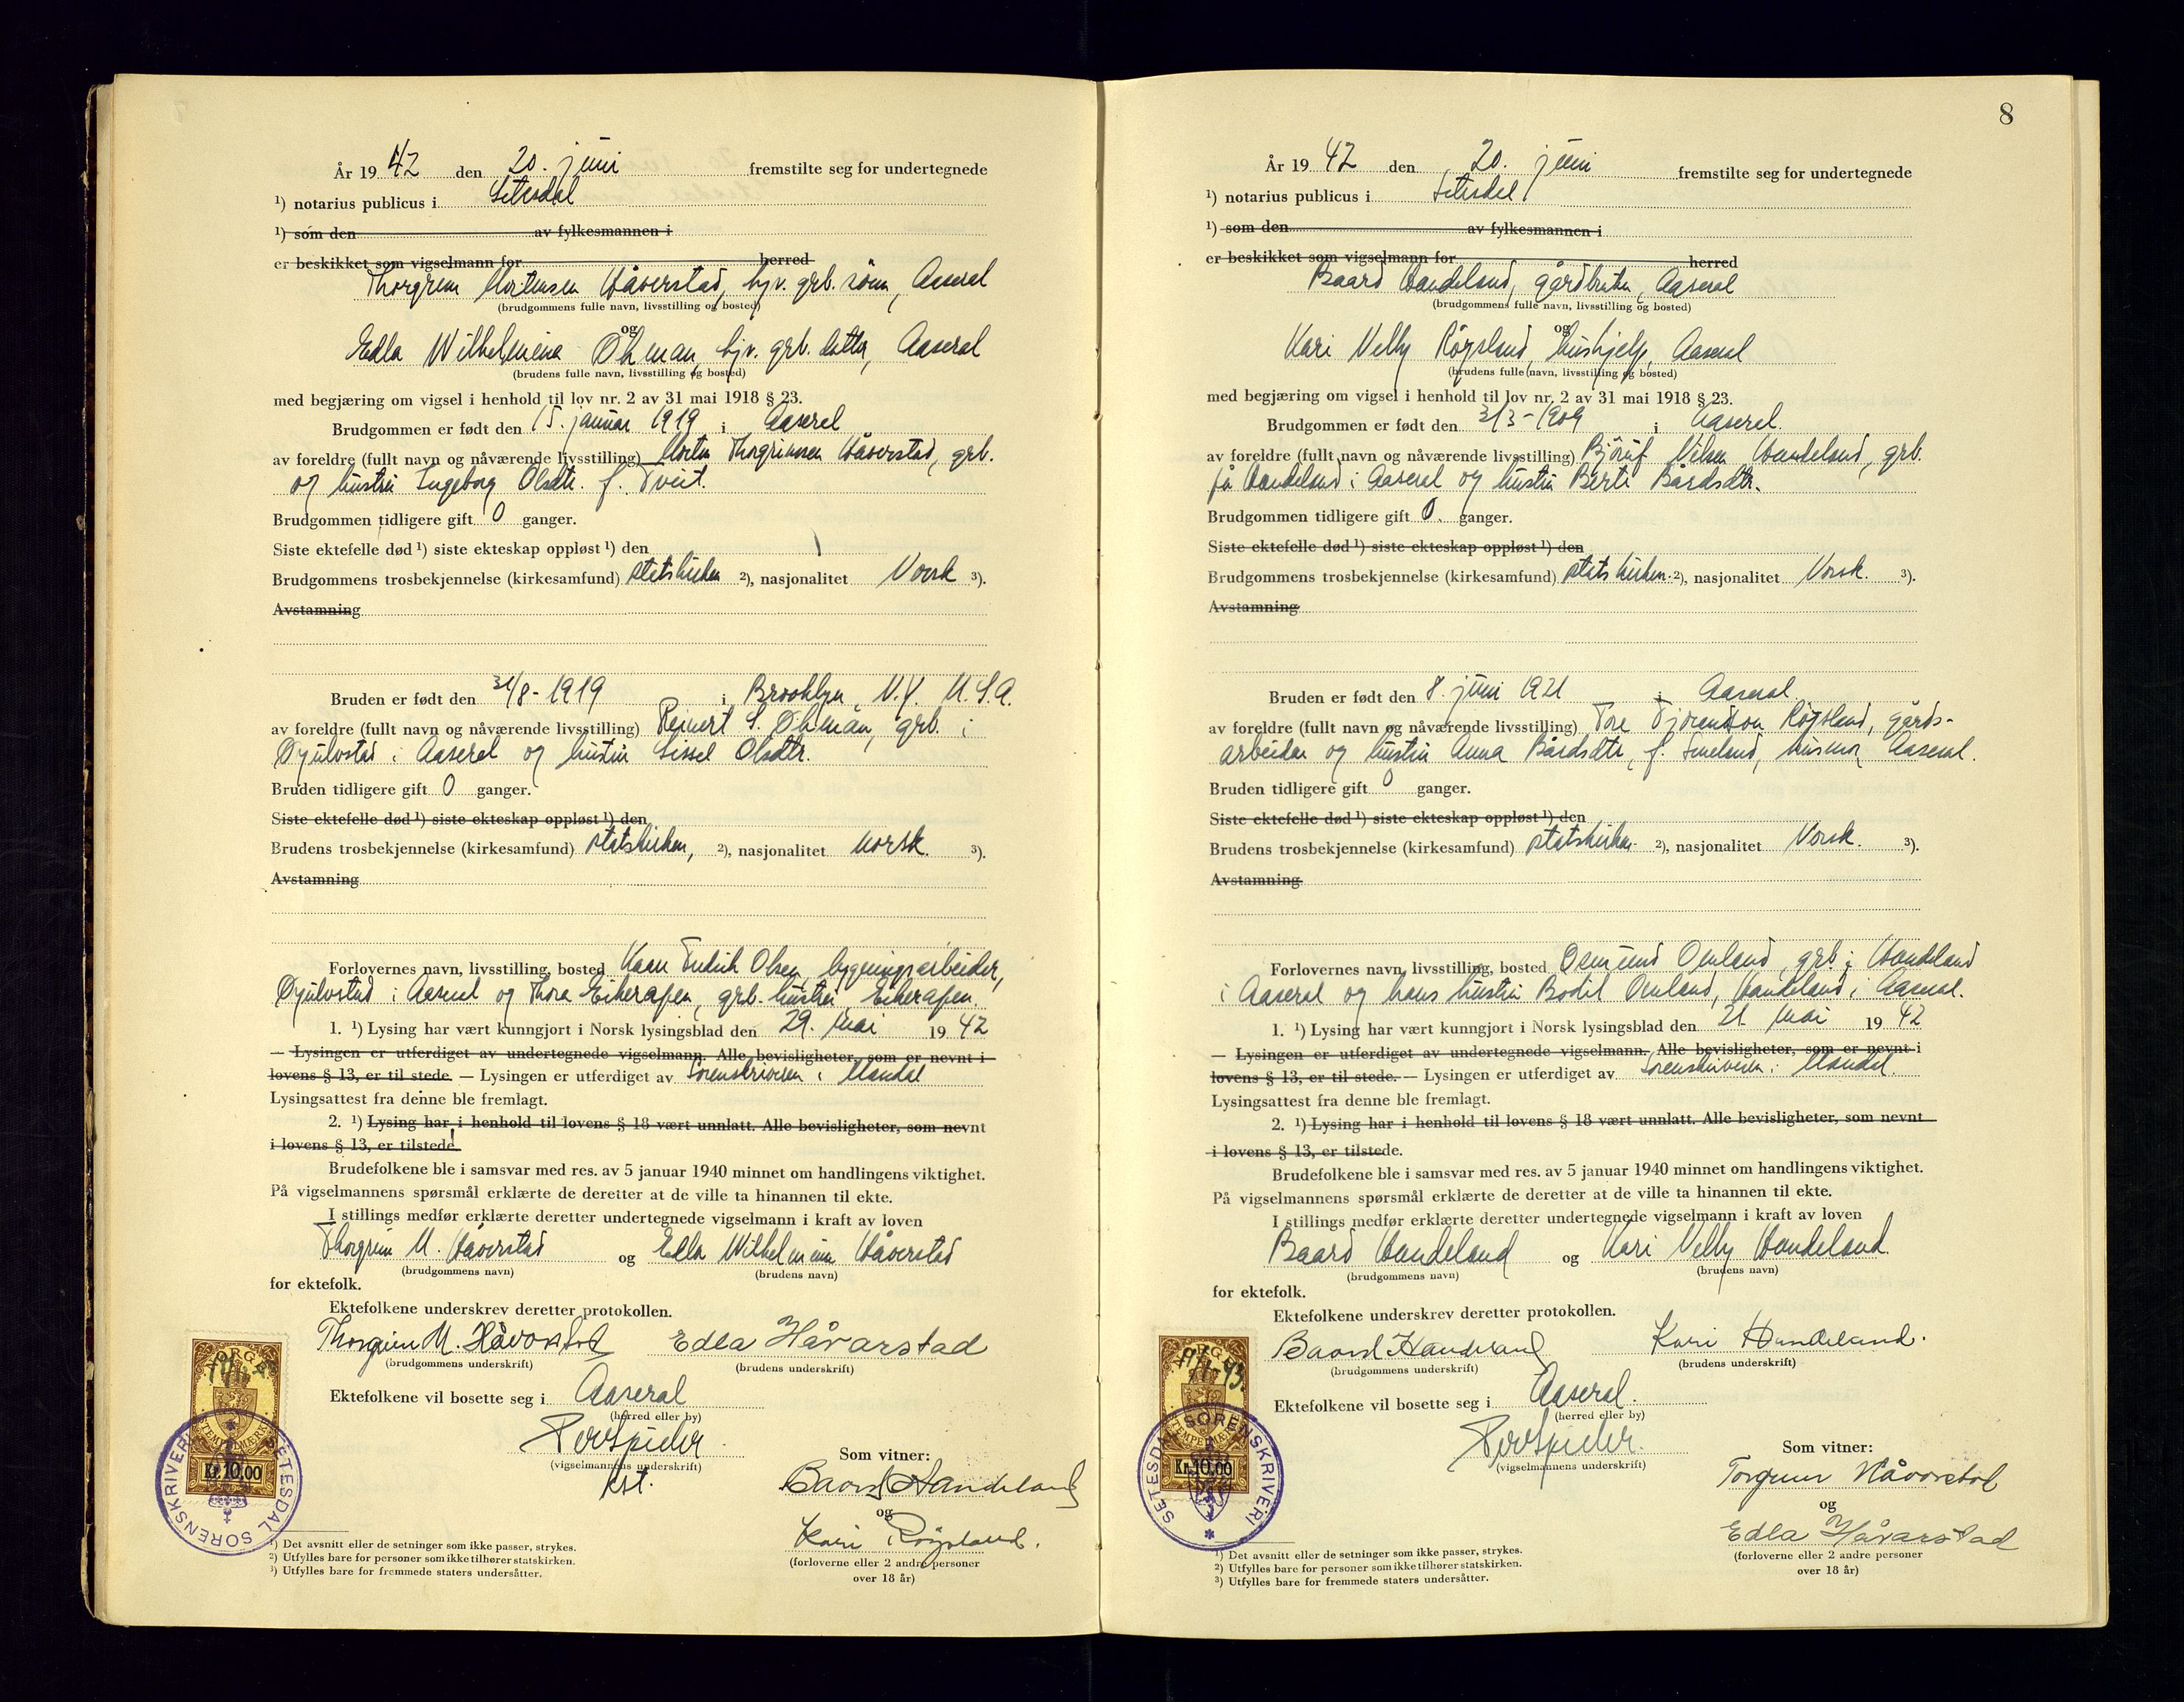 År 19 42 den 20. juni fremstilte seg for undertegnede
¹) notarius publicus i Setesdal
¹) som den av fylkesmannen i
er beskikket som vigselmann for herred
Thorgrim Mortensen Håverstad, hjv. grb. sønn, Aaseral
(brudgommens fulle navn, livsstilling og bosted)
og
Edla Wilhelmine Öhman, hjv. grb. datter, Aaseral
(brudens fulle navn, livsstilling og bosted)
med begjæring om vigsel i henhold til lov nr. 2 av 31 mai 1918 § 23.
Brudgommen er født den 15. januar 1919 i Aaseral
av foreldre (fullt navn og nåværende livsstilling) Morten Thorgrimsen Håverstad, grb.
og hustru Ingeborg Olsdtr. f. Tveit.
Brudgommen tidligere gift 0 ganger.
Siste ektefelle død ¹) siste ekteskap oppløst ¹) den
Brudgommens trosbekjennelse (kirkesamfund) statskirken ²), nasjonalitet Norsk ³).
Avstamning
Bruden er født den 31/8-1919 i Brooklyn, N.Y. U.S.A.
av foreldre (fullt navn og nåværende livsstilling) Reinert S. Öhman, grb. i
Øyulvstad i Aaseral og hustru Sissel Olsdtr.
Bruden tidligere gift 0 ganger.
Siste ektefelle død ¹) siste ekteskap oppløst ¹) den
Brudens trosbekjennelse (kirkesamfund) statskirken, ²), nasjonalitet norsk. ³).
Avstamning
Forlovernes navn, livsstilling, bosted Fredrik Olsen, bygningsarbeider,
Øyulvstad i Aaseral og Thora Eikerapen, grb. hustru, Eikerapen.
1. ¹) Lysing har vært kunngjort i Norsk lysingsblad den 29. mai 19 42
— Lysingen er utferdiget av undertegnede vigselmann. Alle bevisligheter, som er nevnt i
lovens § 13, er til stede. — Lysingen er utferdiget av Sorenskriveren i Mandal
Lysingsattest fra denne ble fremlagt.
2. ¹) Lysing har i henhold til lovens § 18 vært unnlatt. Alle bevisligheter, som nevnt
i lovens § 13, er tilstede.
Brudefolkene ble i samsvar med res. av 5 januar 1940 minnet om handlingens viktighet.
På vigselmannens spørsmål erklærte de deretter at de ville ta hinannen til ekte.
I stillings medfør erklærte deretter undertegnede vigselmann i kraft av loven
Thorgrim M. Håverstad og Edla Wilhelmine Håverstad
(brudgommens navn) (brudens navn)
for ektefolk.
Ektefolkene underskrev deretter protokollen.
Thorgrim M. Håvorstad Edla Håvarstad
(brudgommens underskrift) (brudens underskrift)
Ektefolkene vil bosette seg i Aaseral
(herred eller by)
(vigselmannens underskrift)
kst.
Som vitner:
Baard Handeland
og
Kari Röysland.
(forloverne eller 2 andre personer
over 18 år)
NORGE
STEMPELMÆRKE
Kr. 10.00
SETESDAL SORENSKRIVERI
¹) Det avsnitt eller de setninger som ikke passer, strykes.
²) Utfylles bare for personer som ikke tilhører statskirken.
³) Utfylles bare for fremmede staters undersåtter.
8
År 19 42 den 20. juni fremstilte seg for undertegnede
¹) notarius publicus i Setesdal
¹) som den av fylkesmannen i
er beskikket som vigselmann for herred
Baard Handeland, gårdbruker, Aaseral
(brudgommens fulle navn, livsstilling og bosted)
og
Kari Nelly Röysland, hushjelp, Aaseral
(brudens fulle navn, livsstilling og bosted)
med begjæring om vigsel i henhold til lov nr. 2 av 31 mai 1918 § 23.
Brudgommen er født den 3/3-1909 i Aaseral.
av foreldre (fullt navn og nåværende livsstilling) Nilsen Handeland, grb.
på Handeland i Aaseral og hustru Berte Bårdsdtr.
Brudgommen tidligere gift 0. ganger.
Siste ektefelle død ¹) siste ekteskap oppløst ¹) den
Brudgommens trosbekjennelse (kirkesamfund) statskirken. ²), nasjonalitet Norsk. ³).
Avstamning
Bruden er født den 8. juni 1921 i Aaseral.
av foreldre (fullt navn og nåværende livsstilling) Tore Røysland, gårds-
arbeider og hustru Anna Bårdsdtr, f. Smeland, husmor, Aaseral.
Bruden tidligere gift 0 ganger.
Siste ektefelle død ¹) siste ekteskap oppløst ¹) den
Brudens trosbekjennelse (kirkesamfund) statskirken. ²), nasjonalitet Norsk. ³).
Avstamning
Forlovernes navn, livsstilling, bosted Osmund Omland, grb. i Handeland
i Aaseral og hans hustru Bodil Omland, Handeland i Aaseral.
1. ¹) Lysing har vært kunngjort i Norsk lysingsblad den 21. mai 19 42
— Lysingen er utferdiget av undertegnede vigselmann. Alle bevisligheter, som er nevnt i
lovens § 13, er til stede. — Lysingen er utferdiget av Sorenskriveren i Mandal.
Lysingsattest fra denne ble fremlagt.
2. ¹) Lysing har i henhold til lovens § 18 vært unnlatt. Alle bevisligheter, som nevnt
i lovens § 13, er tilstede.
Brudefolkene ble i samsvar med res. av 5 januar 1940 minnet om handlingens viktighet.
På vigselmannens spørsmål erklærte de deretter at de ville ta hinannen til ekte.
I stillings medfør erklærte deretter undertegnede vigselmann i kraft av loven
Baard Handeland og Kari Nelly Handeland
(brudgommens navn) (brudens navn)
for ektefolk.
Ektefolkene underskrev deretter protokollen.
Baard Handeland Kari Handeland.
(brudgommens underskrift) (brudens underskrift)
Ektefolkene vil bosette seg i Aaseral.
(herred eller by)
(vigselmannens underskrift)
Som vitner:
Torgrim Håvorstad
og
Edla Håvarstad
(forloverne eller 2 andre personer
over 18 år)
NORGE
STEMPELMÆRKE
Kr. 10.00
SETESDAL SORENSKRIVERI
¹) Det avsnitt eller de setninger som ikke passer, strykes.
²) Utfylles bare for personer som ikke tilhører statskirken.
³) Utfylles bare for fremmede staters undersåtter.